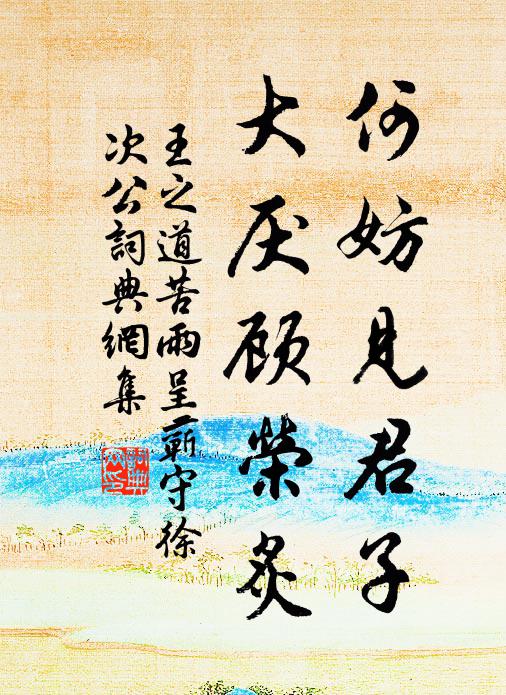 何妨見君子
大厌顾榮炙
王之道苦雨呈蘄守徐
次公詞典網集